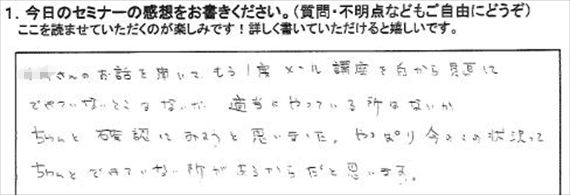 1. 今日のセミナーの感想をお書きください。(質問・不明点などもご自由にどうぞ)
ここを読ませていただくのが楽しみです!詳しく書いていただけると嬉しいです。
さんのお話を聞いて、もう1度メール講座を1から見直して
できていないとこはないか 適当にやっている所はないか
ちゃんと確認してみようと思いました。やっぱり今のこの状況って
ちゃんとできていない所があるからだと思います。